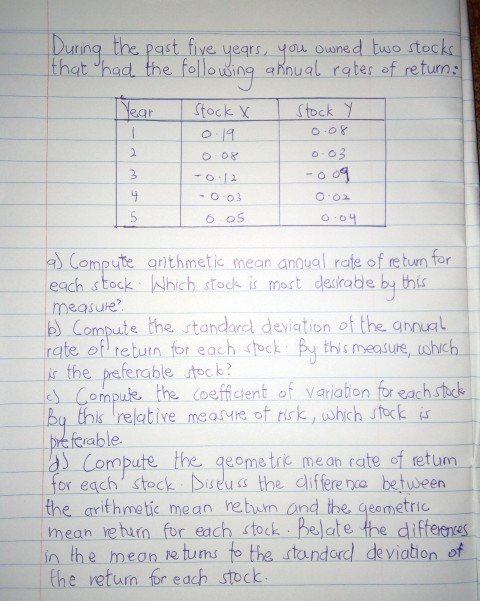 During the past five years, you owned two stocks
that had the following annual rates of return:
Year Stock X Stock Y
1 0.19 0.08
2 0.08 0.03
3 -0.12 -0.09
4 -0.03 0.02
5 0.05 0.04
a) Compute arithmetic mean annual rate of return for
each stock. Which stock is most desirable by this
measure?
b) Compute the standard deviation of the annual
rate of return for each stock. By this measure, which
is the preferable stock?
c) Compute the coefficient of variation for each stock
By this relative measure of risk, which stock is
preferable
d) Compute the geometric mean rate of return
for each stock. Discuss the difference between
the arithmetic mean return and the geometric
mean return for each stock. Relate the differences
in the mean returns to the standard deviation of
the return for each stock.